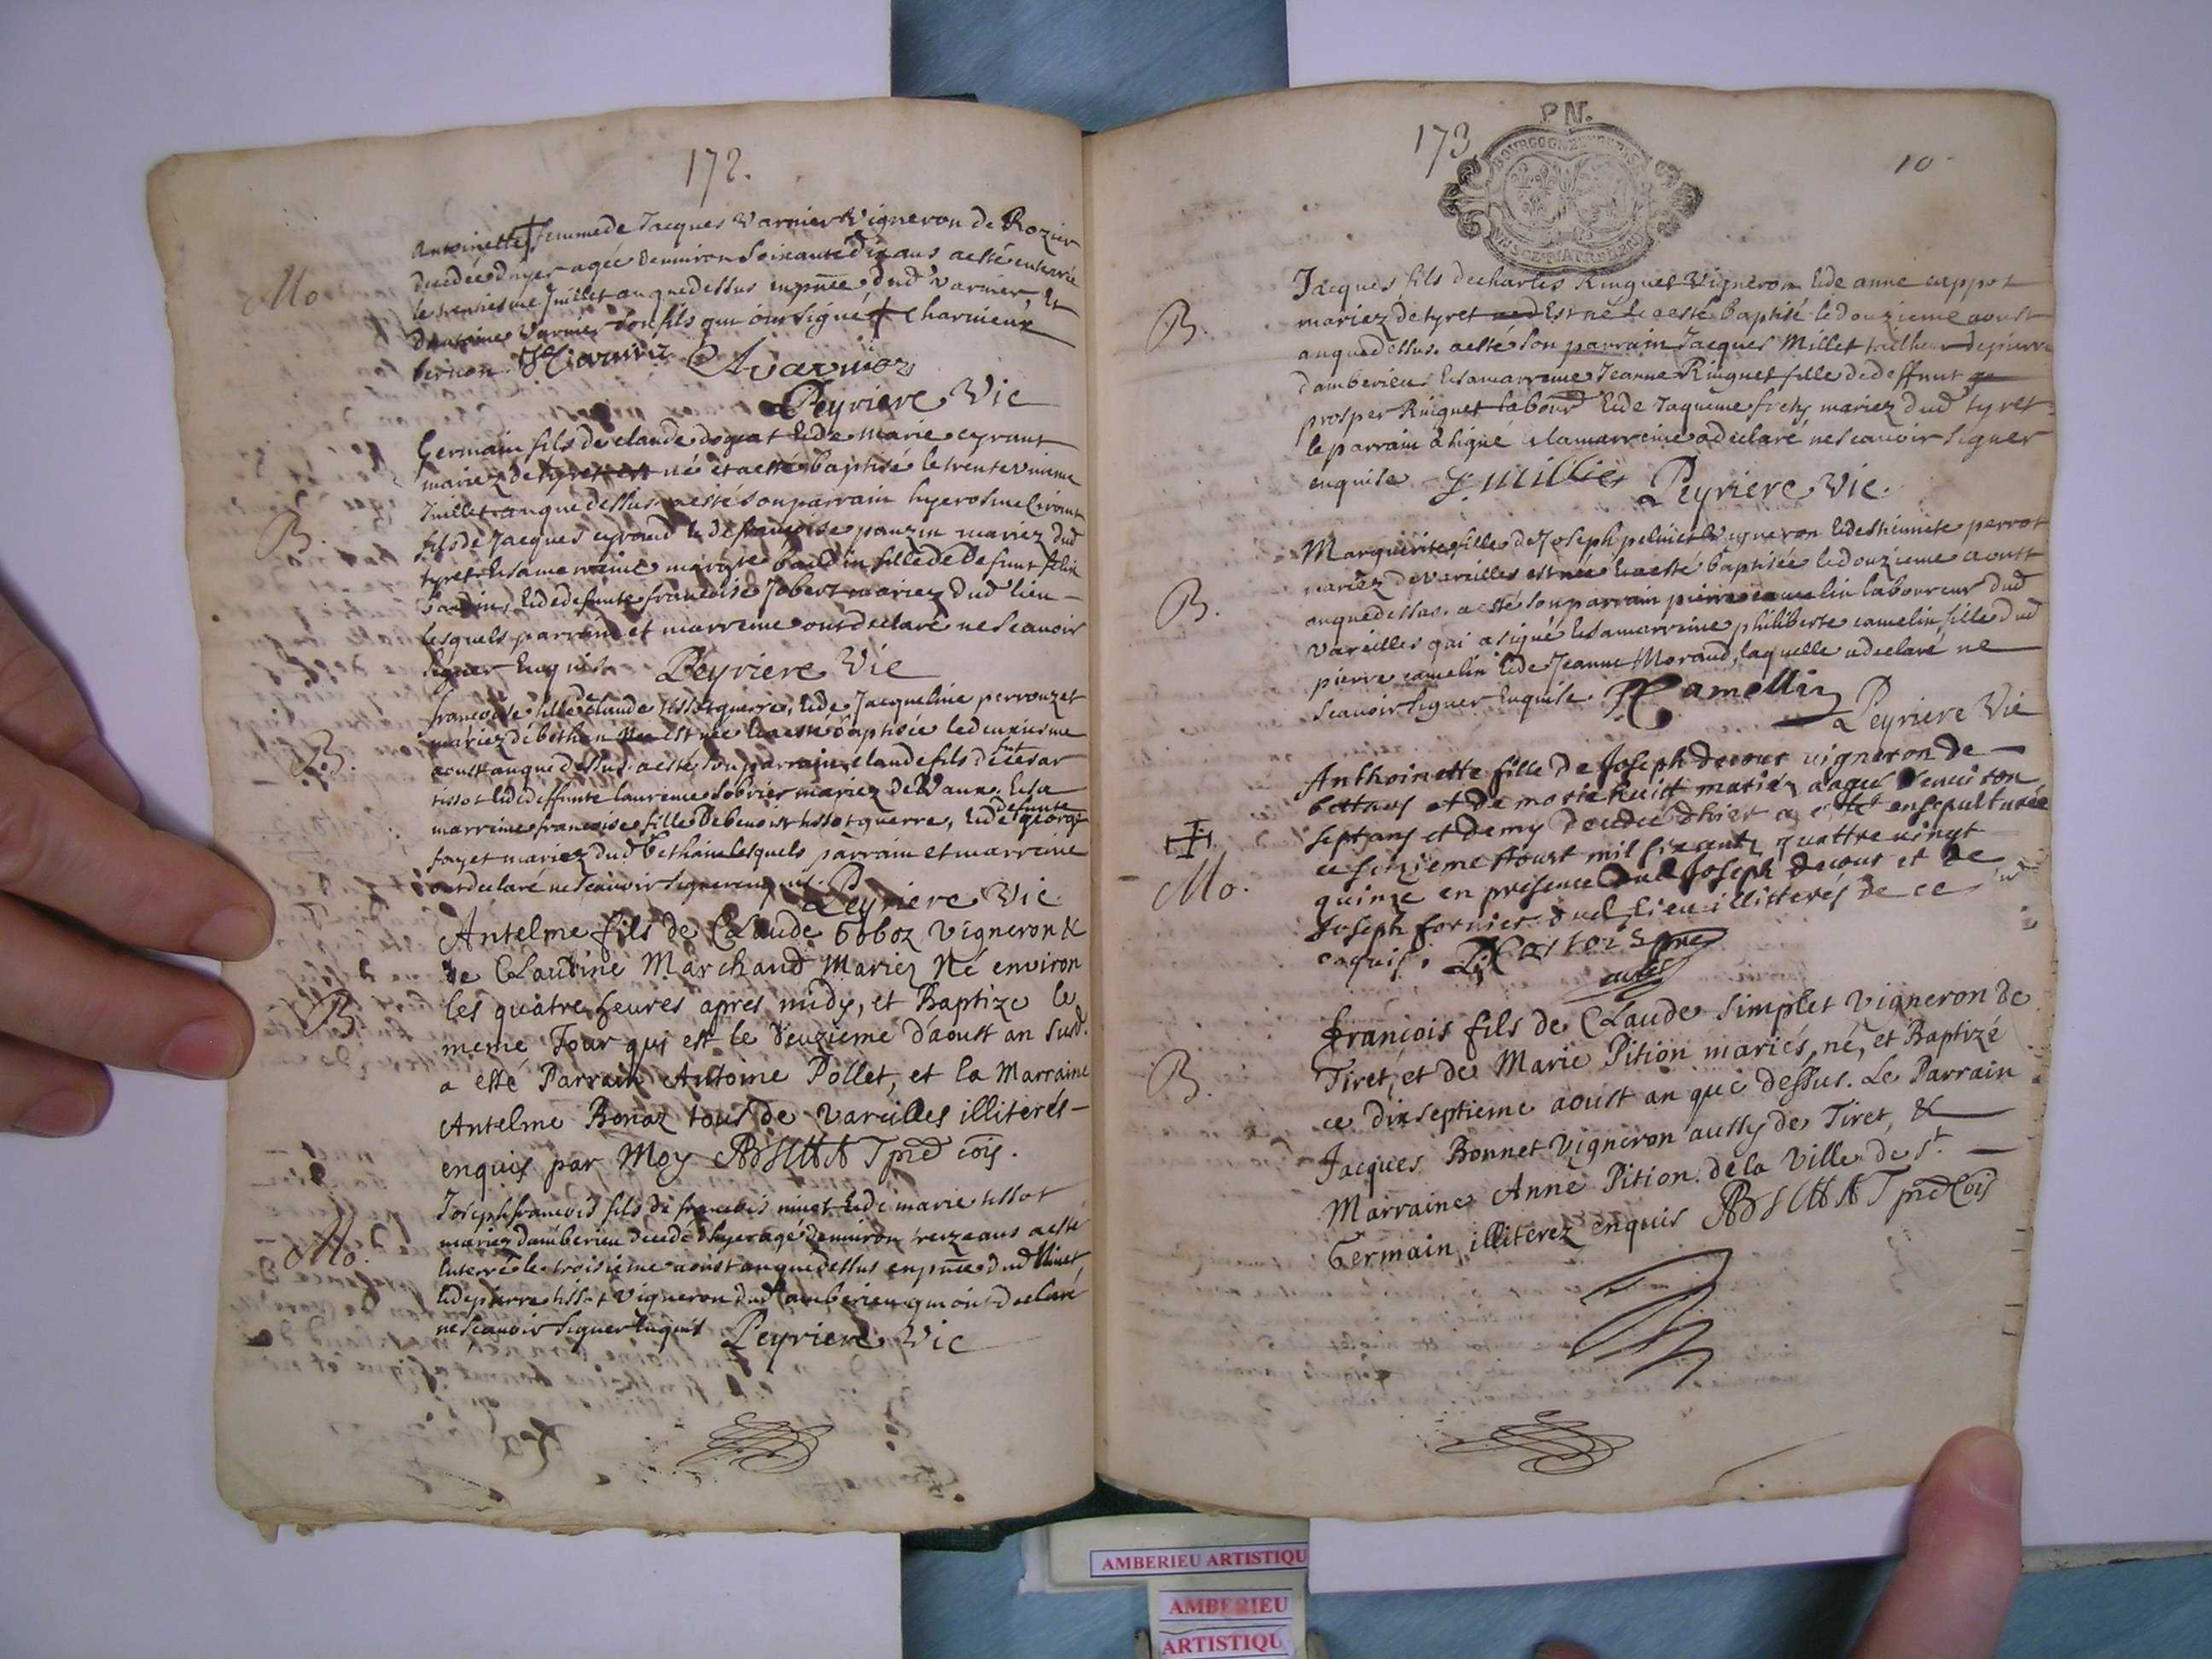 172.
Mo
Antoinette + femme de Jacques Varnier Vigneron de Rozier
decedée dhyer agée denuiron Soixante dix ans a esté enterrée
le trentiesme Juillet an que dessus en pñce dud Varnier, Et
Dantoine Varnier son fils qui ont signé + charnieux
bernon
Peyriere Vic
B.
Germain fils de claude dogeat & de Marie cyraut
mariez de tyret est né et a esté baptisé le trente unieme
Juillet an que dessus a esté son parrain hyerosme Ciraut
fils de Jacques cyraud & de françoise pauzin mariez dud
tyret & sa marraine marie baudin fille de defunt
baudin, & de defunte francoise Jobert mariez dud lieu
lesquels parrain et marreine ont declaré ne scauoir
signer enquis Peyriere Vic
B.
francoise fille de claude tissot guerre, & de Jacqueline perrouzet
mariez de bethen est née & a esté baptisée le deuxiesme
aoust an que dessus a esté son parrain claude fils de Cesar
tissot & de deffunte laurence sobrier mariez de Vaux. & sa
marreine francoise fille de benoist tissot guerre, & de defunte george
fayet mariez dud bethen lesquels parrain et marreine
ont declaré ne scauoir signer enquis. Peyriere Vic
B
Antelme fils de CLaude Boboz Vigneron &
de CLaudine Marchand Mariez Né environ
les quatre heures apres midy, et Baptize le
meme Jour qui est le deuzieme d'aoust an susd.
a esté Parrain Antoine Pollet, et la Marraine
Antelme Bonaz tous de Vareilles illiterés
enquis par Moy
Mo.
Joseph francois fils de francois niuet & de marie tissot
mariez dambérieu decedé dhyer agé denuiron treze ans a esté
enterré le troisieme aoust an que dessus en pñce dud Niuet,
& de pierre tissot Vigneron dud ambérieu qui ont declaré
ne scauoir signer enquis Peyriere Vic
173
PN.
10
B.
Jacques fils de charles Ringuet Vigneron & de anne cuppot
mariez de tyret Est né & a esté baptisé le douzieme aoust
an que dessus. a esté son parrain Jacques Millet tailleur de pierre
dambérieu & sa marreine Jeanne Ringuet fille de deffunt
prosper Ringuet labourr & de Jaqueme frety mariez dud tyret
le parrain a signé & la marreine a declaré ne scauoir signer
enquise J. Millier Peyriere Vic.
B.
Marguerite fille de Joseph peluiet Vigneron & destiennete perrot
mariez de Vareilles est née & a esté baptisée le douzieme aoust
an que dessus. a esté son parrain pierre camelin laboureur dud
Vareilles qui a signé & sa marreine philiberte camelin fille dud
pierre camelin & de Jeanne Morand, laquelle a declaré ne
scauoir signer Enquise P Camellin Peyriere Vic
Mo.
Anthoinette fille de Joseph decour uigneron de
bettans et de marie huitt mariés aagée denuiron
sept ans et demy decedée dhier a esté ensepulturée
ce seizieme Aoust mil six cents quattre uingt
quinze en presence dud Joseph decour et de
Joseph fornier dud lieu illitterés de ce
enquis.
B.
François fils de CLaude Simplet Vigneron de
Tiret, et de Marie Pition mariés, né, et Baptizé
ce dixseptieme aoust an que dessus. Le Parrain
Jacques Bonnet Vigneron aussy de Tiret, &
Marraine Anne Pition de la Ville de St.
Germain illiterez enquis
AMBERIEU ARTISTIQU
AMBERIEU
ARTISTIQU